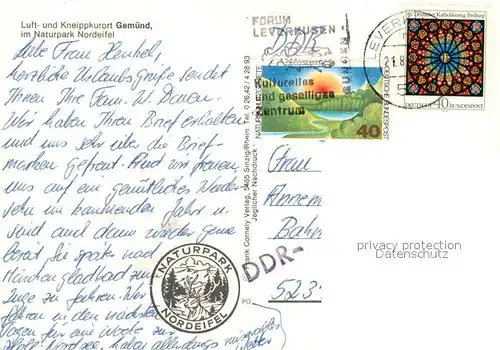 Luft- und Kneippkurort Gemünd,
im Naturpark Nordeifel
Liebe Frau Henkel,
herzliche Urlaubsgrüße sendet
Ihnen Ihre Fam. W. Doren.
Wir haben Ihren Brief erhalten
und uns sehr über die Brief-
marken gefreut. Und wir freuen
uns auf ein gemütliches Wieder-
sehn im kommenden Jahr u.
sind auch dann wieder gerne
bereit Sie später nach
Mönchengladbach zum
Zuge zu fahren. Wir
fahren in den nächsten
Tagen für eine Woche zur
Nordsee, haben allerdings
NATURPARK
NORDEIFEL
Cornely Verlag, 5485 Sinzig/Rhein, Tel. 0 26 42 / 4 28 93
Jeglicher Nachdruck
PO
FORUM
LEVERKUSEN
Kulturelles
und geselliges
Zentrum
40
DEUTSCHE BUNDESPOST
LEVERK
21.8
5
Deutscher Katholikentag Freiburg
DEUTSCHE BUNDESPOST
40
Frau
Annem
Bahn
523
DDR-
privacy protection
Datenschutz